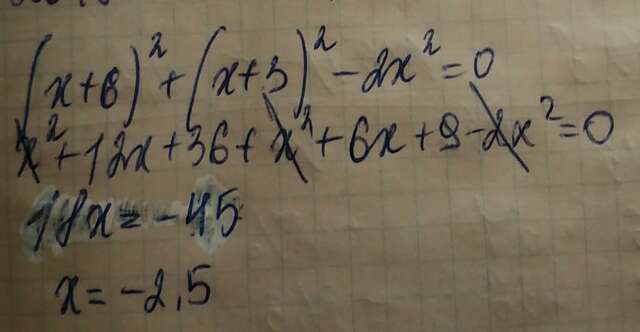 (x+6)²+(x+3)²-2x²=0
x²+12x+36+x²+6x+9-2x²=0
18x=-45
x=-2,5